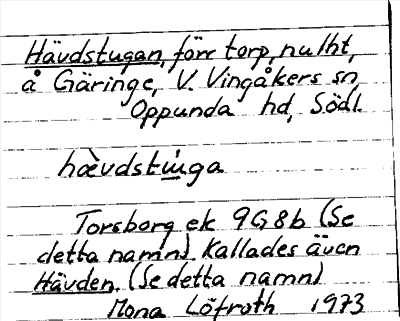 Hävdstugan, förr torp, nu lht,
å Gäringe, V. Vingåkers sn,
Oppunda hd, Södl.
hæ̀vdstɯga
Torsborg ek 9G8b (Se
detta namn). Kallades även
Hävden. (Se detta namn)
Mona Löfroth 1973